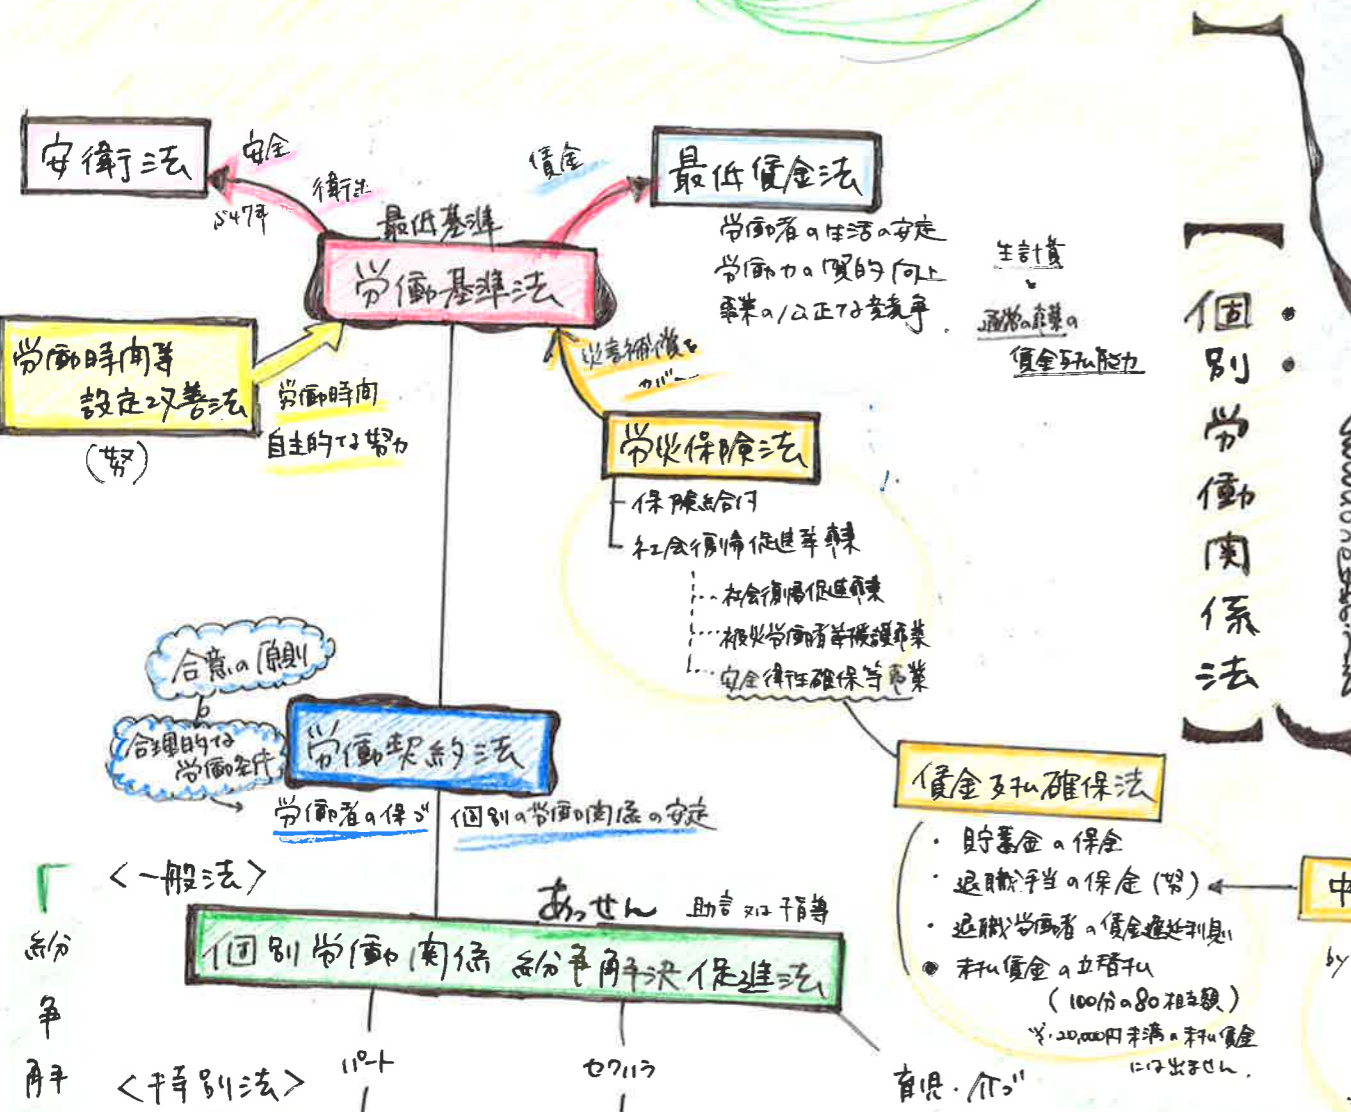 安衛法
安全
衛生
S47年
賃金
最低賃金法
労働者の生活の安定
労働力の質的向上
事業の公正な競争
生計費
通常の事業の
賃金支払能力
最低基準
労働基準法
労働時間等
設定改善法
(努)
労働時間
自主的な努力
災害補償を
カバー
労災保険法
保険給付
社会復帰促進等事業
社会復帰促進事業
被災労働者等援護事業
安全衛生確保等事業
合意の原則
合理的な
労働条件
労働契約法
労働者の保ゴ
個別の労働関係の安定
賃金支払確保法
・貯蓄金の保全
・退職手当の保全(努)
・退職労働者の賃金遅延利息
● 未払賃金の立替払
(100分の80相当額)
※・20,000円未満の未払賃金
には出ません.
中
by
<一般法>
あっせん
助言又は指導
個別労働関係紛争解決促進法
紛争解
<特別法>
パート
セクハラ
育児・介ゴ
【個別労働関係法】